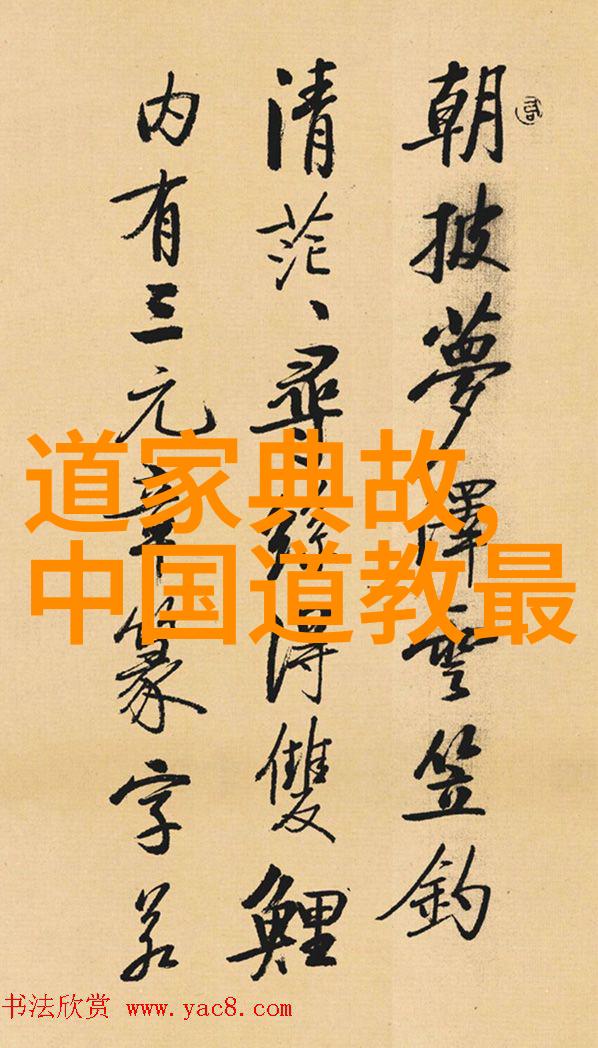 朝披夢澤雲笠釣
清茫〻尋絲得雙鯉
内有三元章篆字若
道家典故,
中国道教最
书法欣赏 www.yac8.com